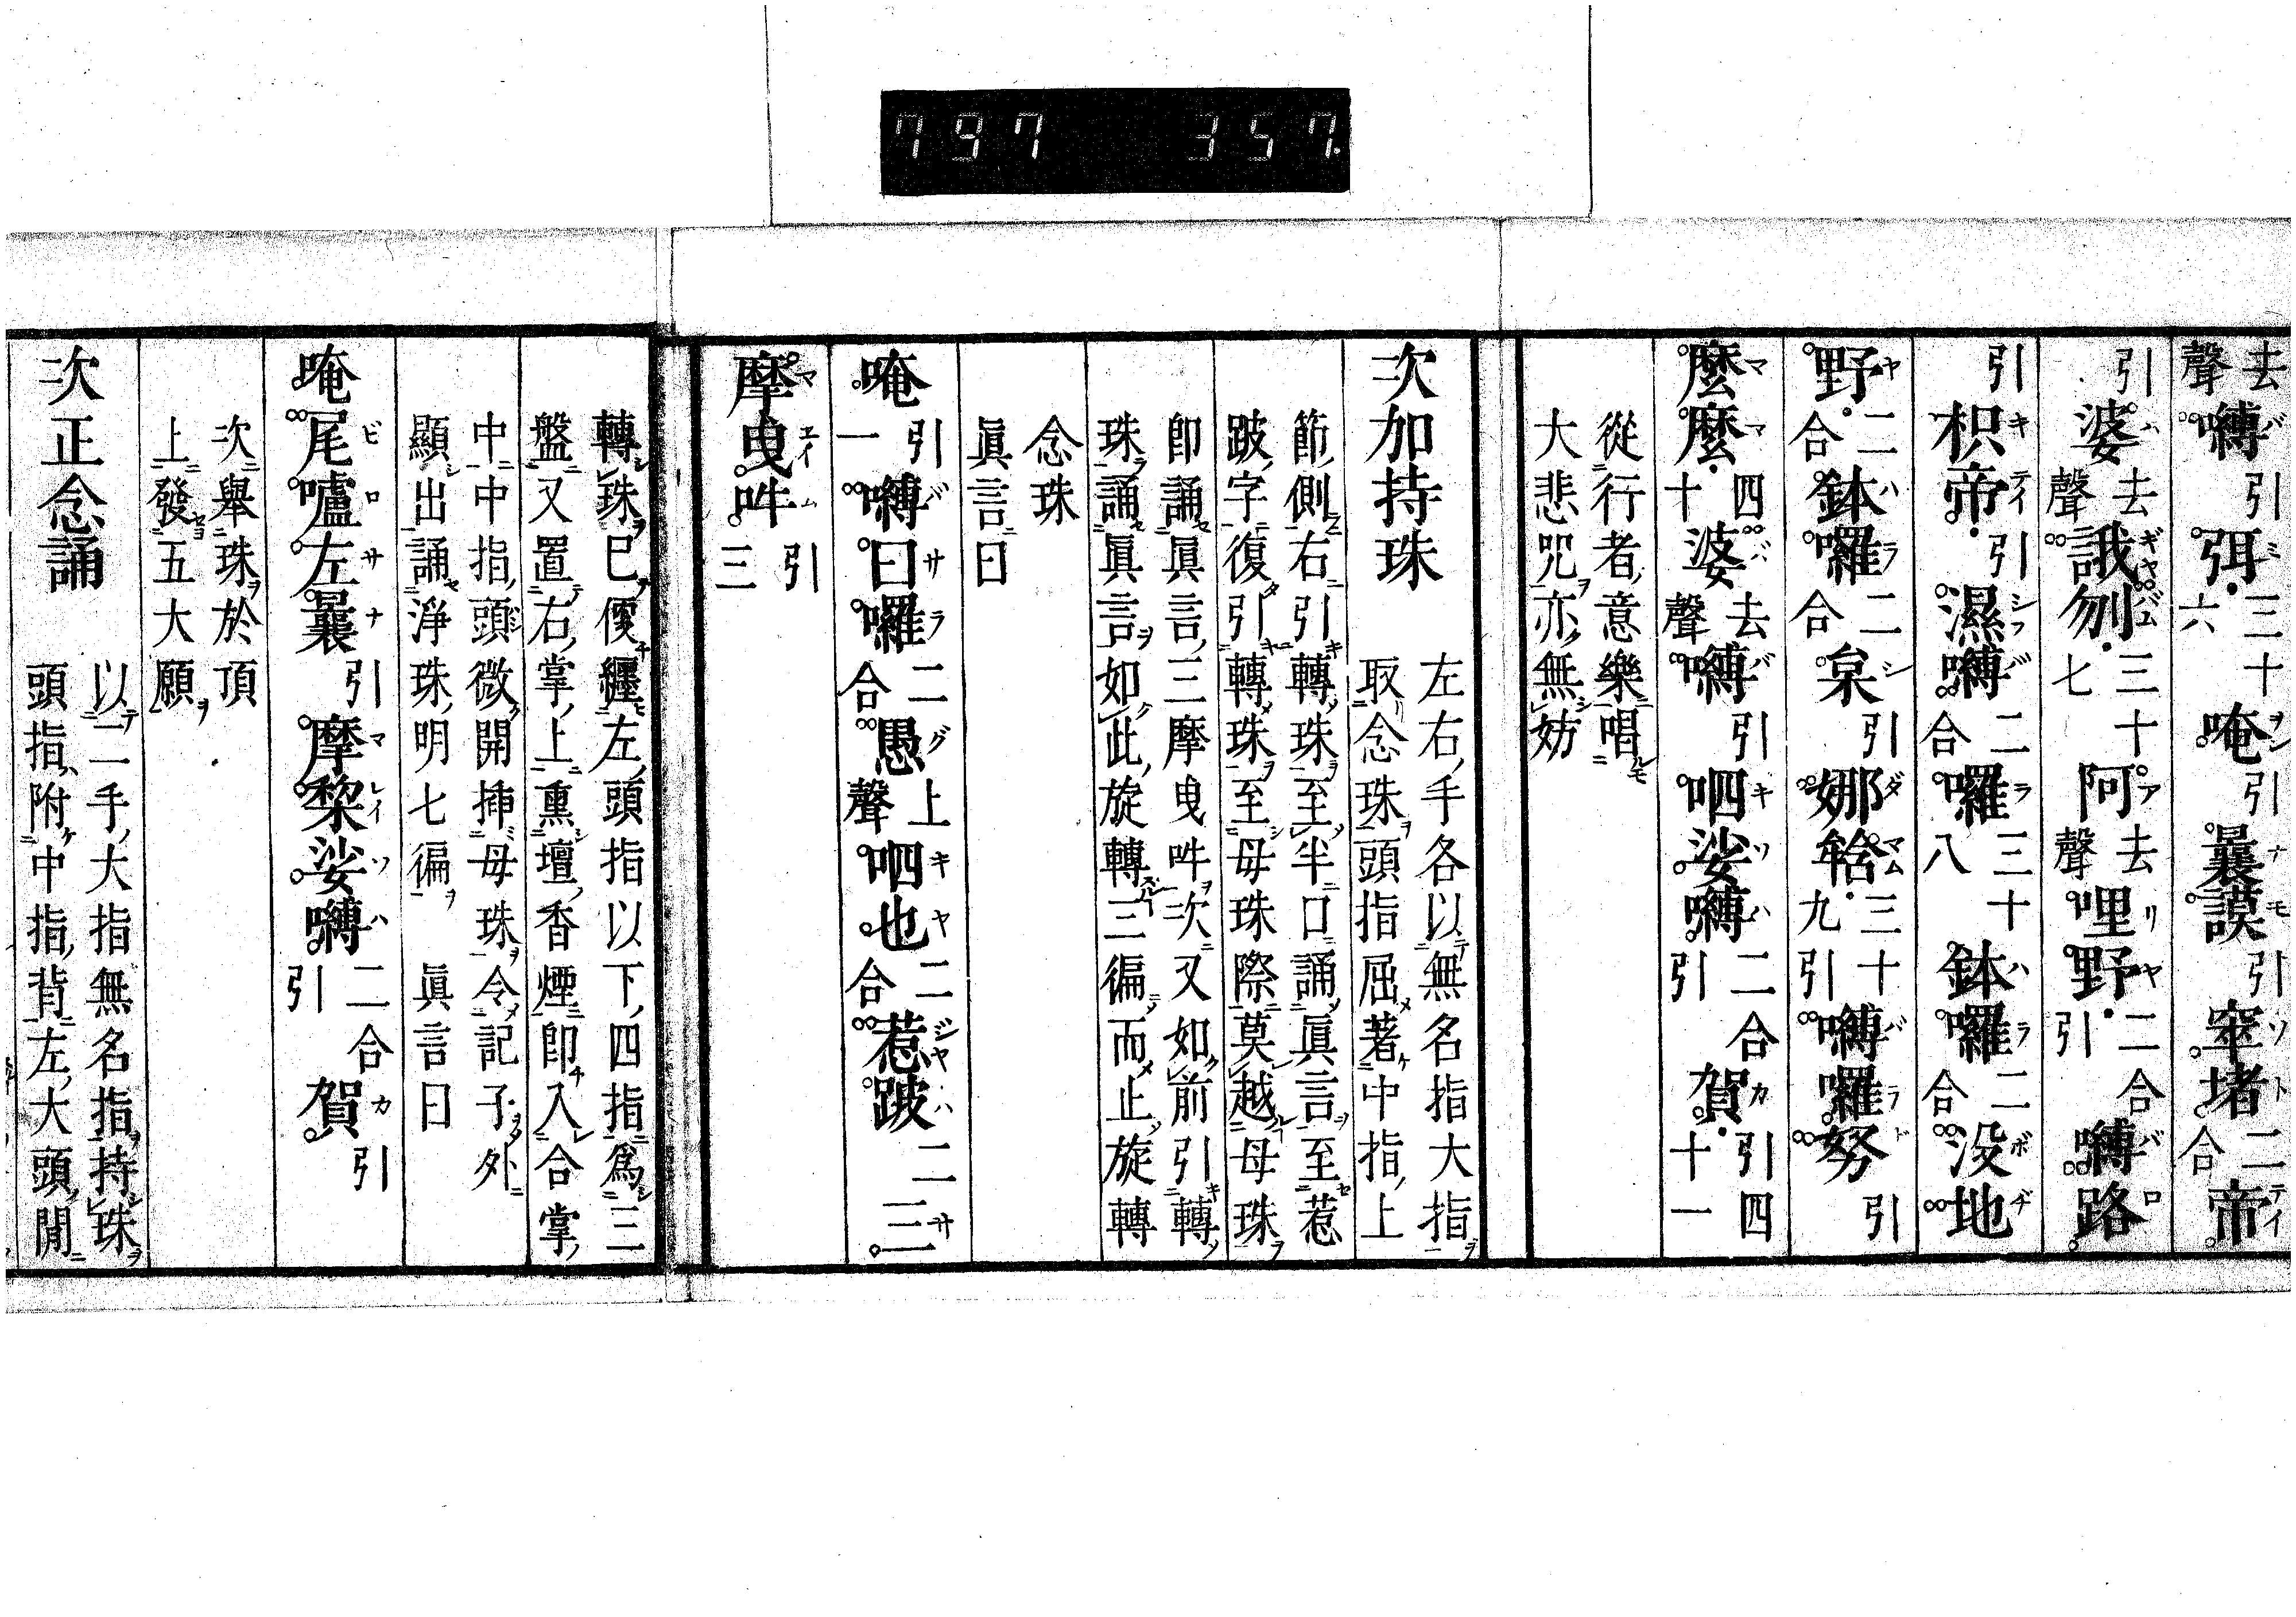 797 357.
去聲嚩引弭三十六唵引曩謨引窣堵二合帝
引婆去聲誐刎三十七阿去聲哩野二合引嚩路
引枳帝引濕嚩二合囉三十八鉢囉二合沒地
野二合鉢囉二合枲引娜𤙖三十九引嚩囉努引
麼麼四十婆去聲嚩引呬娑嚩二合引賀引四十一
從行者意樂唱
大悲咒亦無妨
次加持珠
左右手各以無名指大指
取念珠頭指屈著中指上
節側右引轉珠至半口誦眞言至惹
跛字復引轉珠至母珠際莫越母珠
即誦眞言三摩曳吽次又如前引轉
珠誦眞言如此旋轉三徧而止旋轉
念珠
眞言曰
唵引一嚩日囉二合愚上聲呬也二合惹跛二合三
摩曳吽引三
轉珠已便纒左頭指以下四指爲三
盤又置右掌上熏壇香煙即入合掌
中中指頭微開揷母珠令記子外
顯出誦淨珠明七徧 眞言曰
唵尾嚧左曩引摩黎娑嚩二合引賀引
次舉珠於頂
上發五大願
次正念誦
以二手大指無名指持珠
頭指附中指背左大頭間